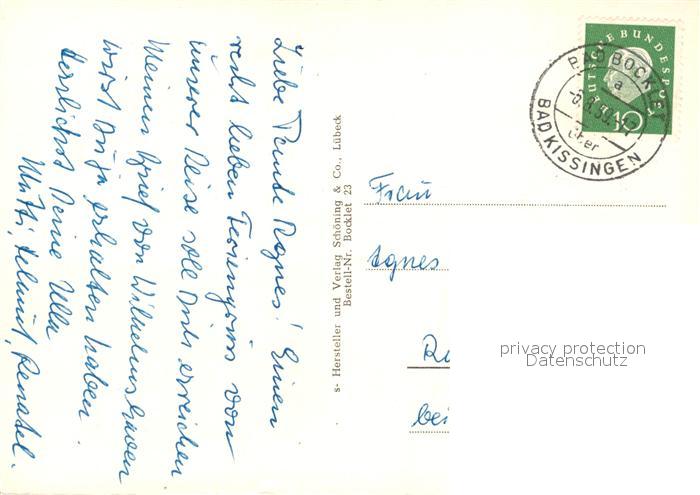 Liebe Tante Agnes! Einen
recht lieben Feriengruß von
unserer Reise soll Dich erreichen
Meinen Brief von Wilhelmshaven
wirst Du ja erhalten haben.
Herzlichst Deine Ulla
Mutti, Helmut, Renate.
s- Hersteller und Verlag Schöning & Co., Lübeck
Bestell-Nr. Bocklet 23
DEUTSCHE BUNDESPOST
10
BAD BOCKLET
a
über
BAD KISSINGEN
Frau
Agnes
bei
privacy protection
Datenschutz